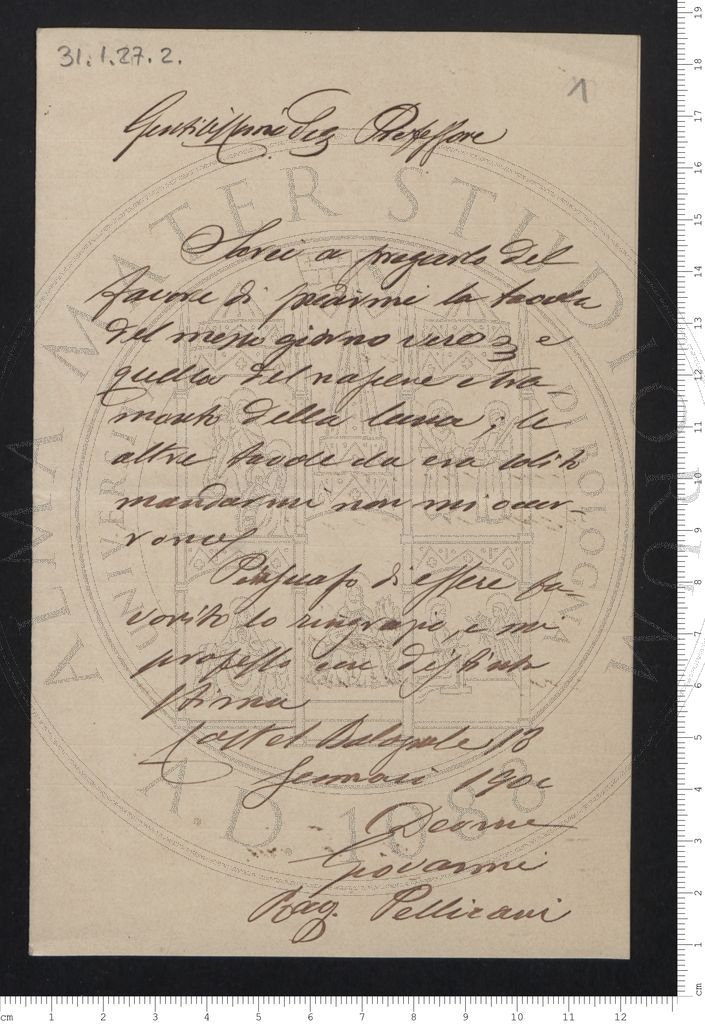 31.1.27.2.
1
Gentilissimo Sig Professore
Sarei a pregarlo del
favore di la tavola
del mezzo giorno vero e
quella del nascere e tra-
monto della luna; le
altre tavole che era solito
mandarmi non mi occor-
rono
Persuaso di essere fa-
vorito lo ringrazio, e mi
professo con distinta
stima
Castel Bolognese 13
Gennaio
Devmo
Giovanni
Rag. Pellicani
ALMA MATER STUDIORUM
UNIVERSITÀ DI BOLOGNA
A.D. 1088